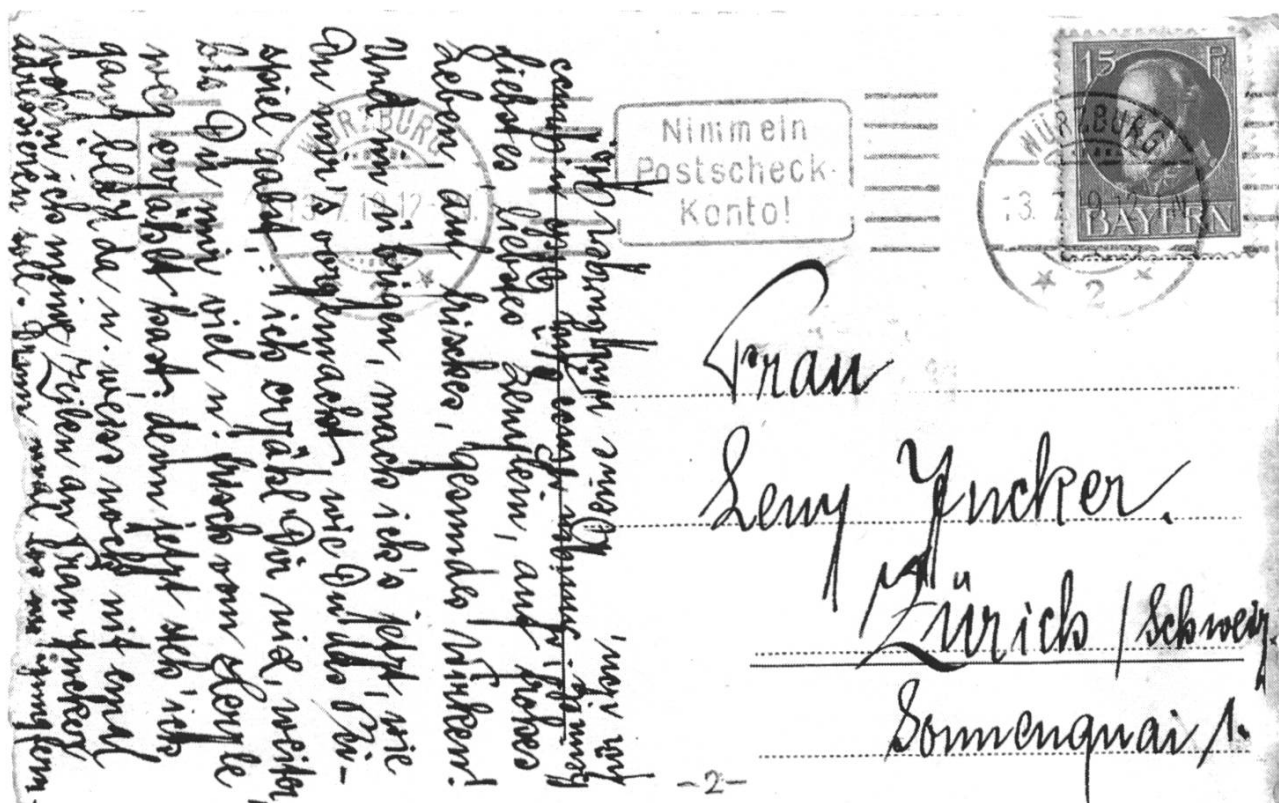 15 Pf
BAYERN
WÜRZBURG
Nimm ein
Postscheck-
Konto!
WÜRZBURG
2
Frau
Leny Yucker.
Zürich / Schweiz.
Sonnenquai 1.
-2-
liebstes, liebes Lenylein, auf frohes
Leben, auf frisches, gesundes Wirken!
Und im übrigen, mach ich's jetzt, wie
Du mir's vorgemacht, wie Du das Bei-
spiel gabst: ich erzähl Dir nix, weiter,
bis Du mir viel u. hübsch vom Herzle
weg erzählet hast; denn jetzt steh' ich
ganz blöd da u. weiss noch nit enal
wohin ich meine Zeilen an Frau Yucker
adressieren soll. Drum
Deine
für ihn,